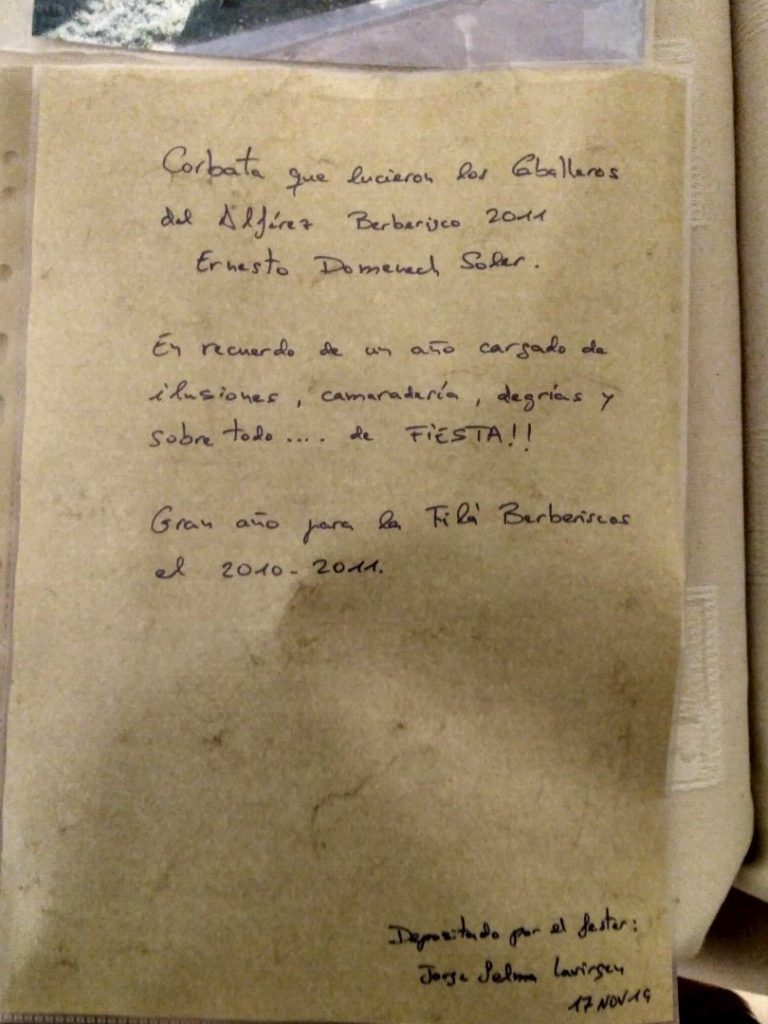 Corbata que lucieron los Caballeros
del Alférez Berberisco 2011
Ernesto Domenech Soler.
En recuerdo de un año cargado de
ilusiones, camaradería, alegrías y
sobre todo .... de FIESTA!!
Gran año para la Filà Berberiscos
el 2010-2011.
Depositado por el fester:
Jorge Selma
17 NOV 19